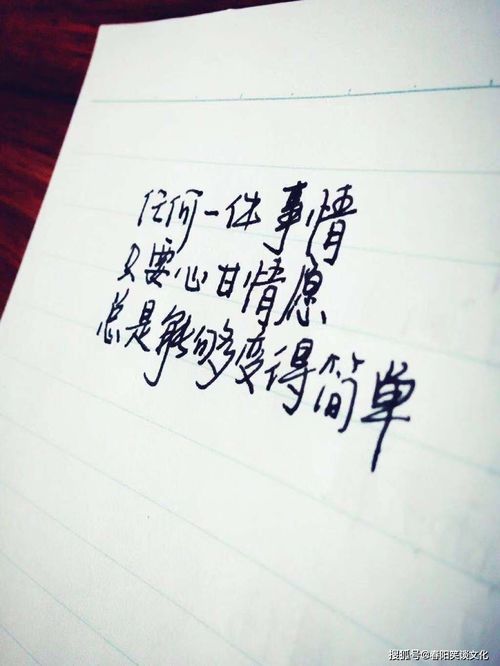 任何一件事情
只要心甘情原
总是能够变得简单
搜狐号@春阳笑谈文化